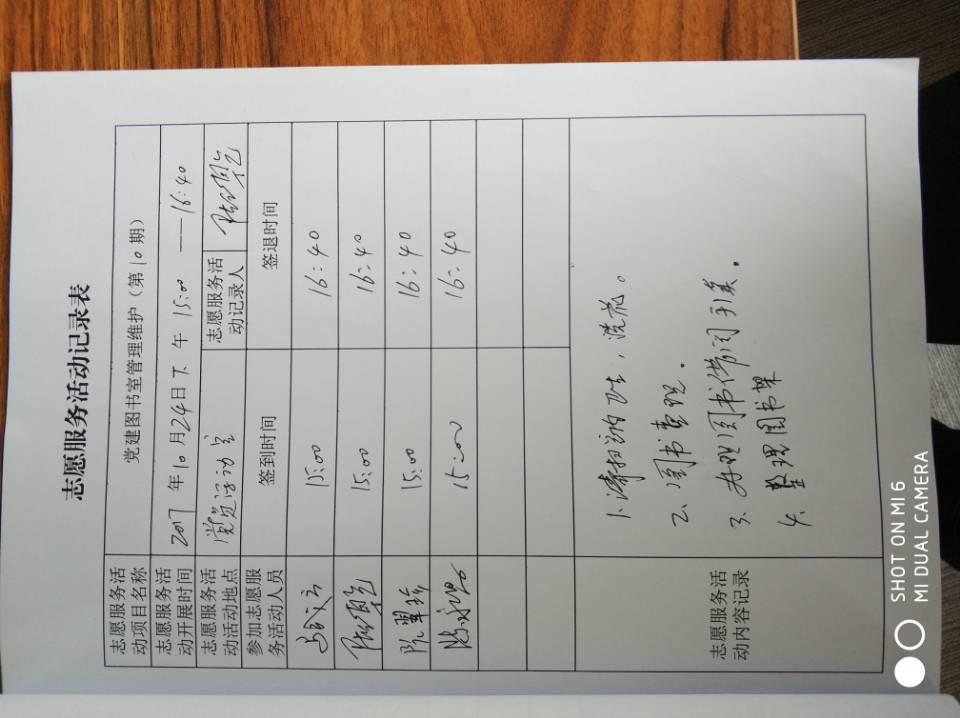 志愿服务活动记录表
志愿服务活
动项目名称
党建图书室管理维护（第10期）
志愿服务活
动开展时间
2017年10月24日下午15:00——16:40
志愿服务活
动活动地点
党员活动室
志愿服务活
动记录人
参加志愿服
务活动人员
签到时间
签退时间
15:00
16:40
15:00
16:40
15:00
16:40
15:00
16:40
志愿服务活
动内容记录
1.清扫室内卫生，浇花。
2、图书查阅。
3、办理图书借阅
4、整理图书架
SHOT ON MI 6
MI DUAL CAMERA